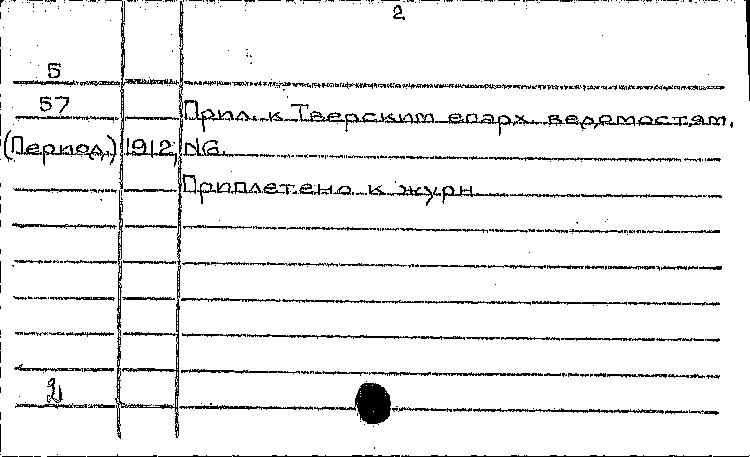 2
5
57 Прил. к Тверским епарх. ведомостям,
(Период.) 1912, №6.
Приплетено к журн.